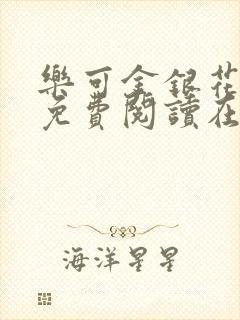 樂可金銀花
免費閱讀在
海洋星星